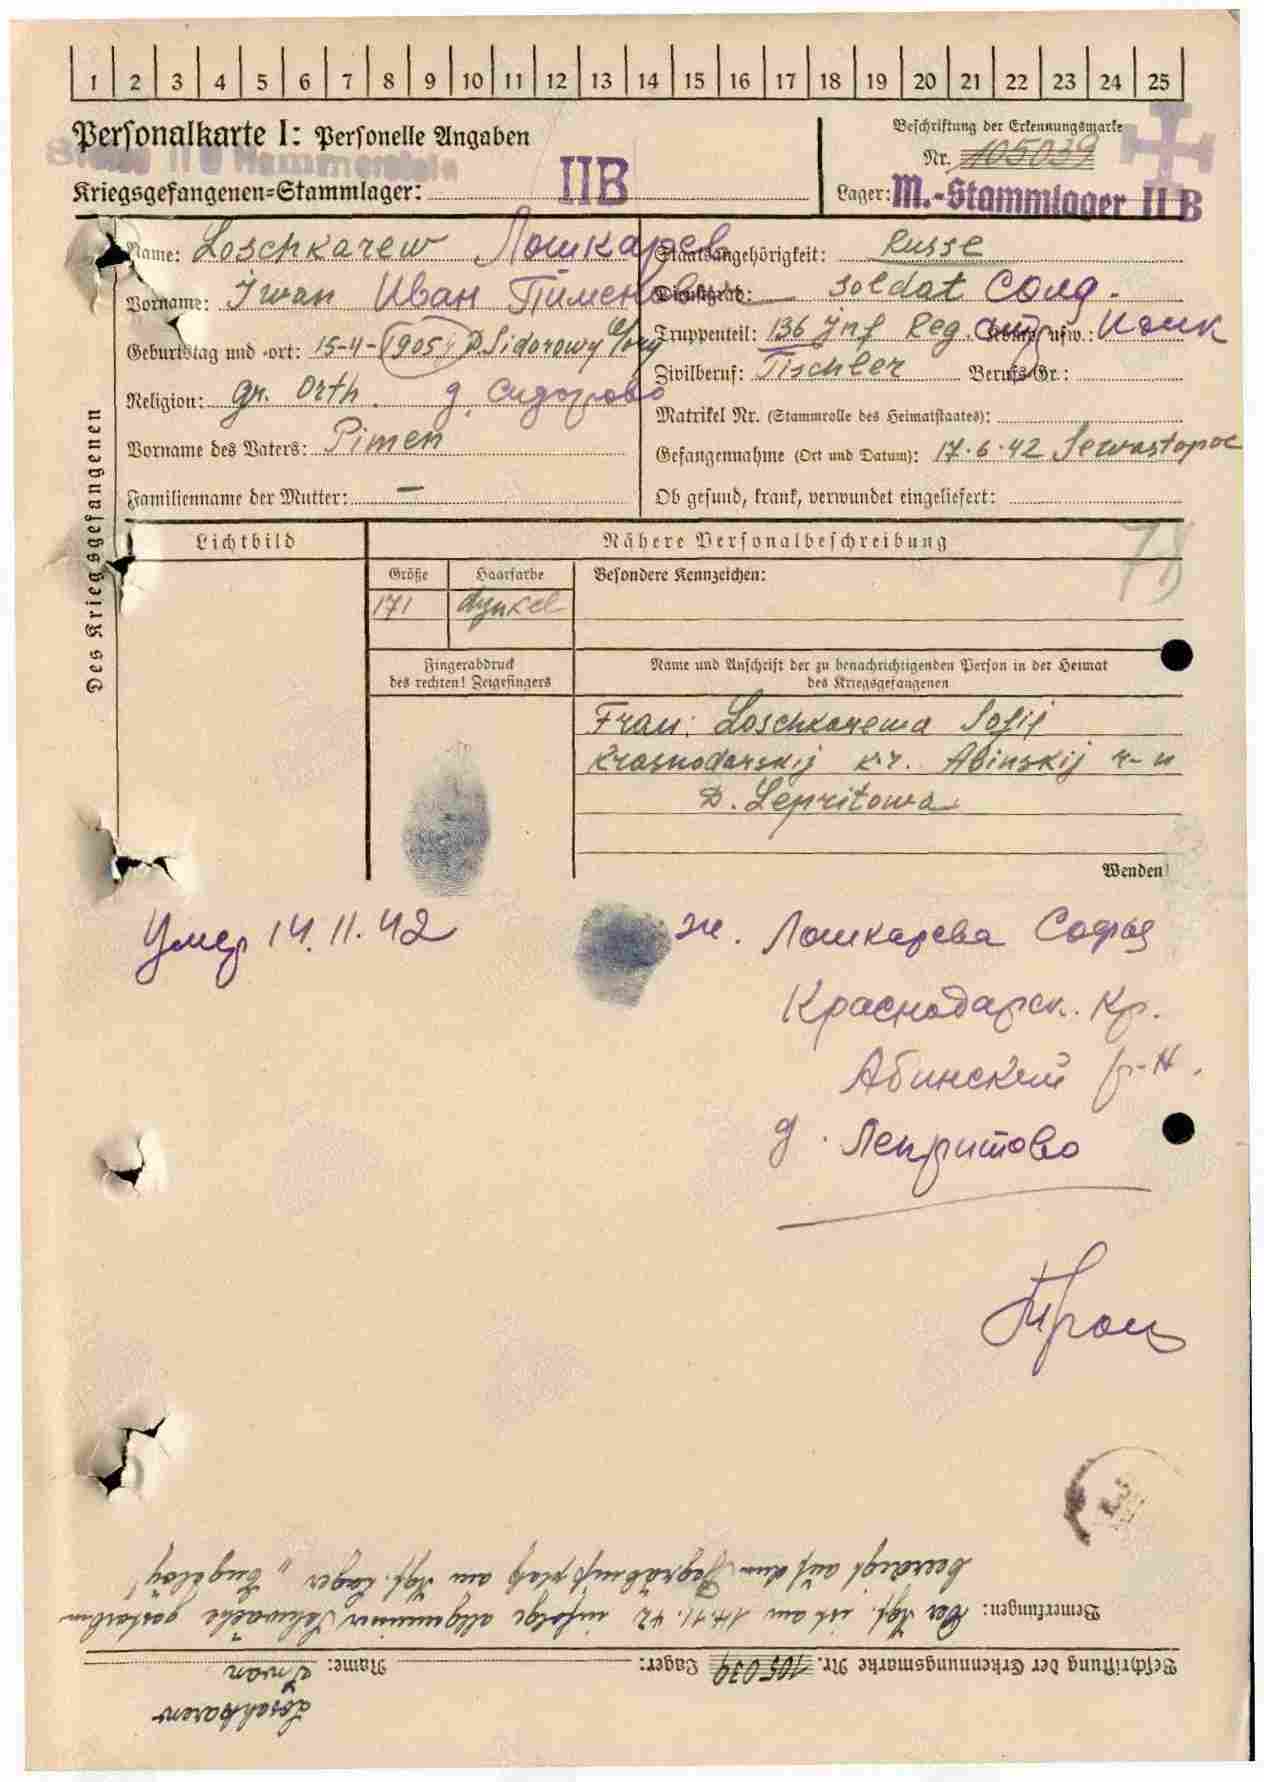 1 2 3 4 5 6 7 8 9 10 11 12 13 14 15 16 17 18 19 20 21 22 23 24 25
Personalkarte I: Personelle Angaben
Beschriftung der Erkennungsmarke
Nr. 105039
Stalag II B Hammerstein
Kriegsgefangenen-Stammlager: II B
Lager: M.-Stammlager II B
Des Kriegsgefangenen
Name: Loschkarew Лошкарев
Vorname: Iwan Иван Пименович
Geburtstag und -ort: 15-4-1905 D. Sidorowy
Religion: gr. Orth. д. Сидорово
Vorname des Vaters: Pimen
Familienname der Mutter: —
Staatsangehörigkeit: Russe
Dienstgrad: Soldat Солд.
Truppenteil: 136 Inf Reg. Komp. usw.:
Zivilberuf: Tischler Berufs-Gr.:
Matrikel Nr. (Stammrolle des Heimatstaates):
Gefangennahme (Ort und Datum): 17.6.42 Sewastopol
Ob gesund, krank, verwundet eingeliefert:
Lichtbild
Nähere Personalbeschreibung
Größe Haarfarbe Besondere Kennzeichen:
171 dunkel
Fingerabdruck
des rechten! Zeigefingers
Name und Anschrift der zu benachrichtigenden Person in der Heimat
des Kriegsgefangenen
Frau: Loschkarewa Sofij
Krasnodarskij kr. Abinskij r-n
D. Lepritowa
Wenden!
Умер 14.11.42
ж. Лошкарева Софья
Краснодарск. Кр.
Абинский р-н.
д. Лепритово
Beschriftung der Erkennungsmarke Nr. 105039 Lager: Name: Loschkarew
Iwan
Bemerkungen: Der Kgf. ist am 14.11.42 infolge allgemeiner Schwäche gestorben
beerdigt auf dem Begräbnisplatz am Kgf. Lager